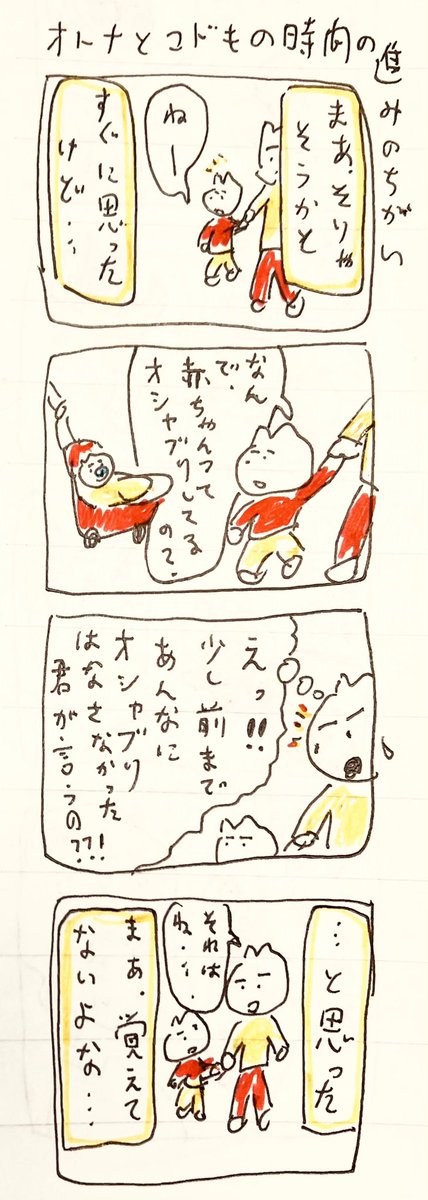 オトナとコドもの時間の
進みのちがい
まあ、そりゃ
そうかと
ねー
すぐに思った
けど・・・
なん
で、
赤ちゃんって
オシャブリしてる
の?
えっ!!
少し前まで
あんなに
オシャブリ
はなさなかった
君が言うの??!
…と思った
それは
ね・・・
まあ、覚えて
ないよなぁ…